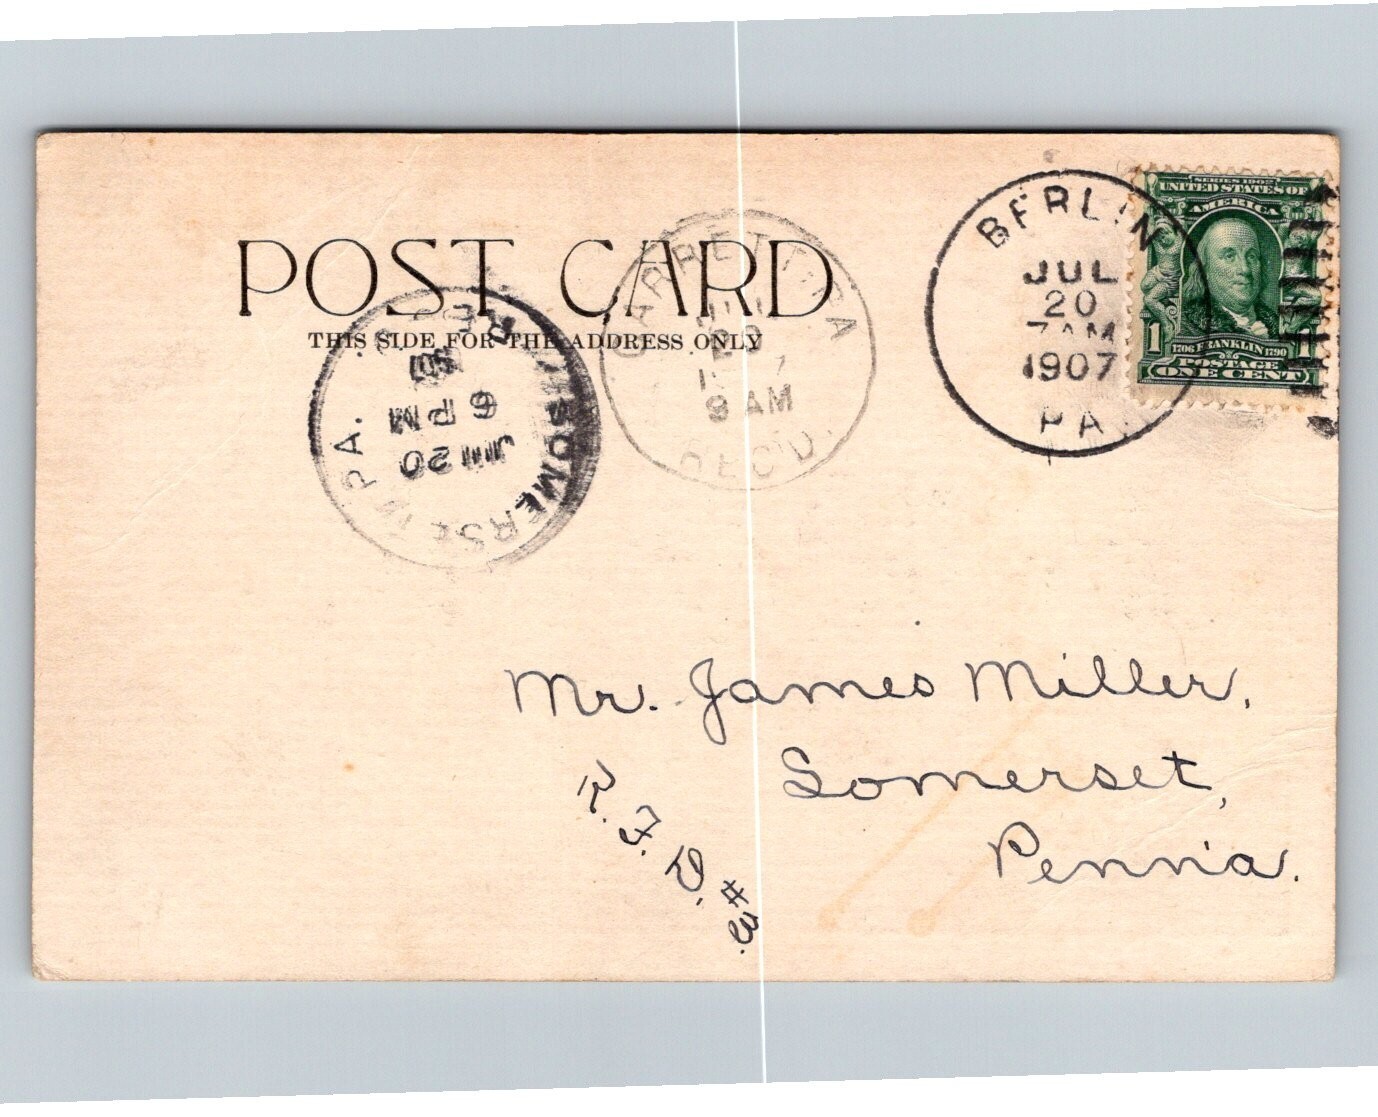 POST CARD
THIS SIDE FOR THE ADDRESS ONLY
BERLIN
JUL
20
7 AM
1907
PA.
SERIES 1902
UNITED STATES OF
AMERICA
1 1
1706 FRANKLIN 1790
POSTAGE
ONE CENT
GARRETT, PA
20
9 AM
REC'D.
SOMERSET, PA.
REC'D
6 PM
JUL 20
Mr. James Miller,
Somerset,
Penn'a.
R.F.D. #3.